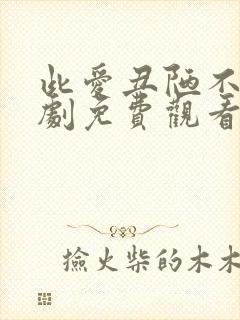 此愛丑陋不
劇免費觀看
撿火柴的木木